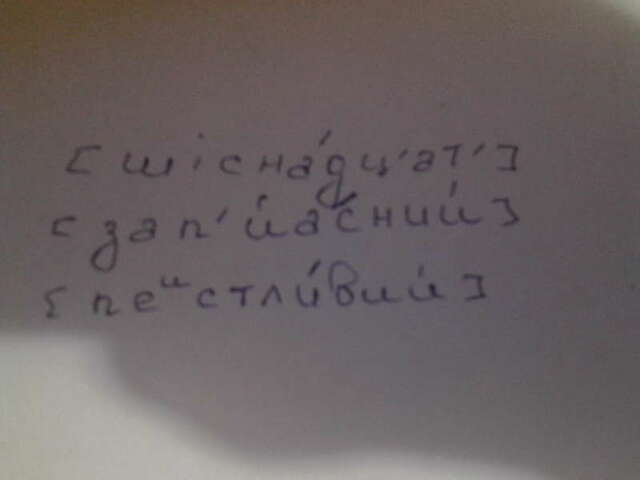 [шіснáдц'ат']
[зап'йáсний]
[пеⁿстлúвий]